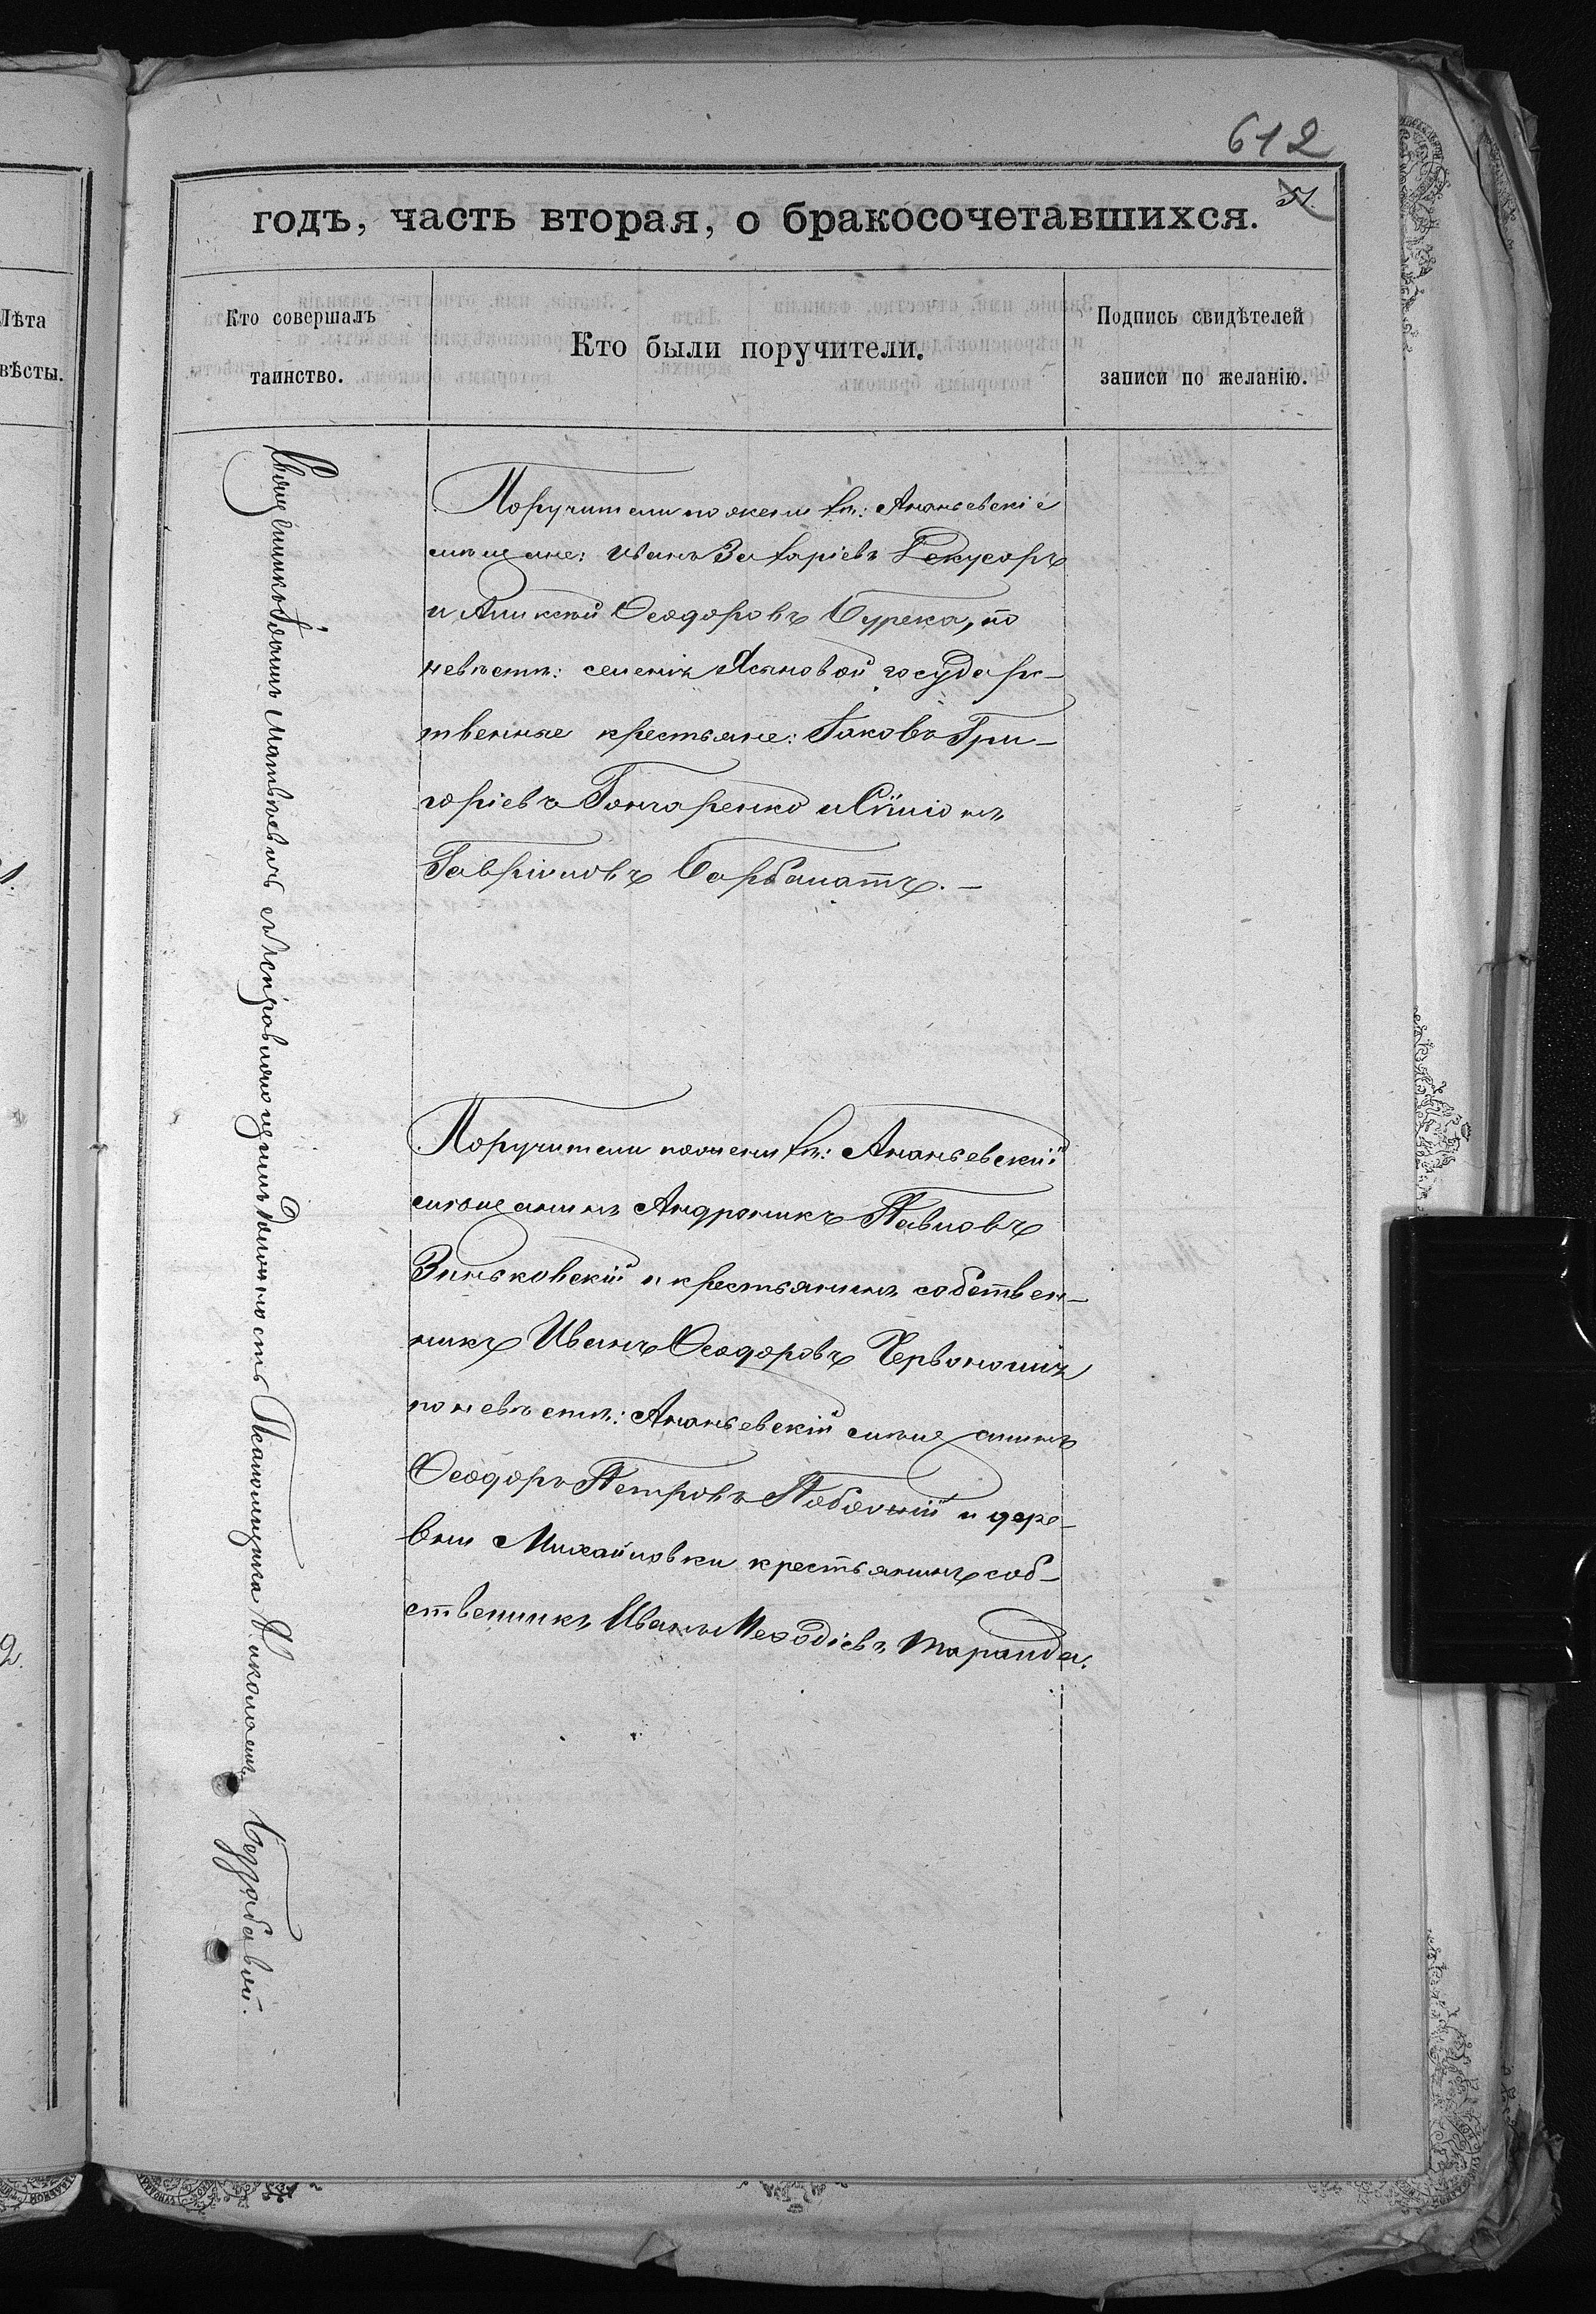 612
51.
годъ, часть вторая, о бракосочетавшихся.
Лѣта
вѣсты.
Кто совершалъ
таинство.
Кто были поручители.
Подпись свидѣтелей
записи по желанію.
Священникъ Іоаннъ Матвѣевичъ съ исправляющимъ должность Псаломщика Николаемъ
Поручители по женихѣ: Ананьевскіе
мѣщане: Иванъ Захаріевъ
и Алексѣй Ѳеодоровъ Бурека, по
невѣстѣ: селенія Ясяновой государс-
твенные крестьяне: Іаковъ Гри-
горіевъ Гончаренко и Симіонъ
Гавріиловъ
Поручители по женихѣ: Ананьевскій
мѣщанинъ Андроникъ Павловъ
Зиньковскій и крестьянинъ собствен-
никъ Иванъ Ѳеодоровъ
по невѣстѣ: Ананьевскій мѣщанинъ
Ѳеодоръ Петровъ Побочій и дере-
вни Михайловки крестьянинъ соб-
ственникъ Иванъ Меѳодіевъ Таранда.
2.